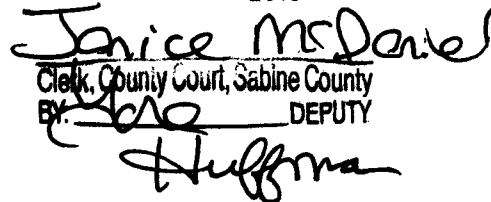 Janice McDaniel
Clerk, County Court, Sabine County
BY. DEPUTY
Huffman